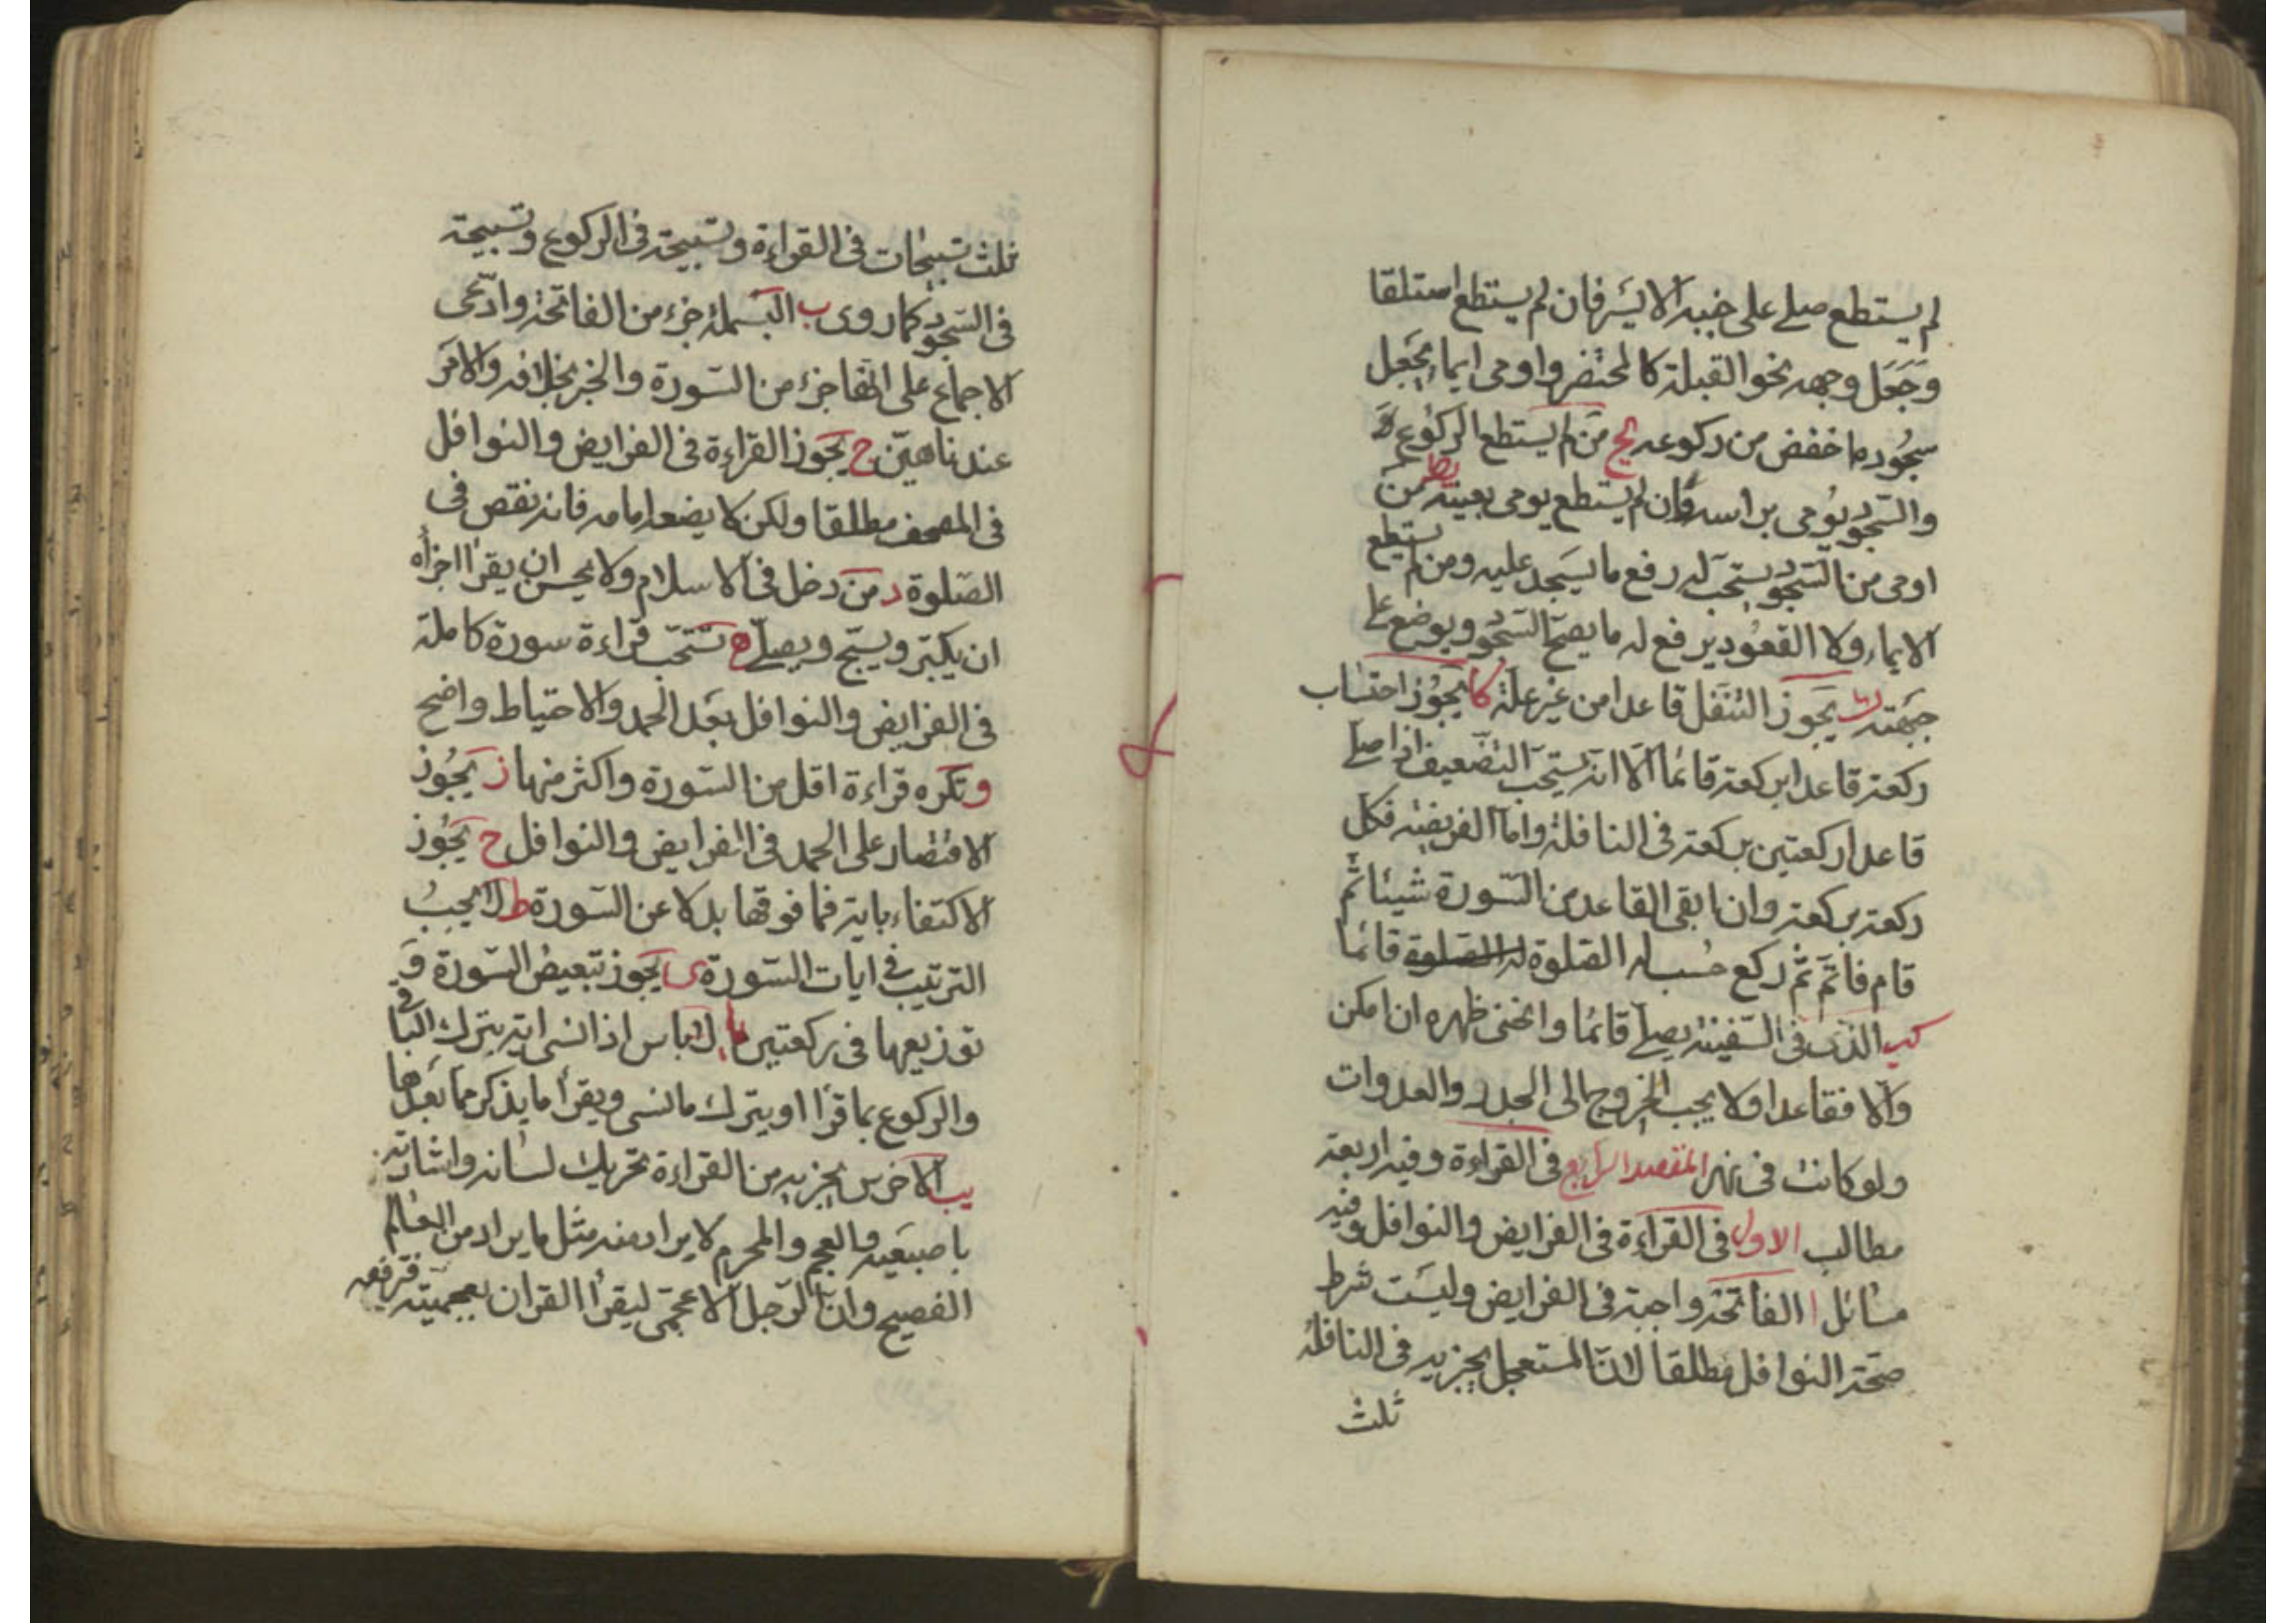 لم يستطع صلى على جنبه الايسر فان لم يستطع استلقا
وجعل وجهه نحو القبلة كالمحتضر واومى ايماء يجعل
سجوده ما خفض من ركوعه يح من لم يستطع الركوع
والسجود يومى براسه وان لم يستطع يومى بعينيه يط من
اومى من السجود يستحب له رفع ما يسجد عليه ومن لم يستطع
الايماء ولا القعود يرفع له ما يصح السجود ويوضع على
جبهته ك يجوز التنفل قاعدا من غير علة كا يجوز احتساب
ركعة قاعدا بركعة قائما الا انه يستحب التضعيف اذا صلى
قاعدا ركعتين بركعة في النافلة واما الفريضة فكل
ركعة بركعة وان ابقى القاعد من السورة شيئا ثم
قام فاتم ثم ركع حسب له الصلوة له الصلوة قائما
كب الذي في السفينة يصلى قائما وانحنى ظهره ان امكن
والا فقاعدا ولا يجب الخروج الى الجدد والعدوات
ولو كانت في نهر المقصد الرابع في القراءة وفيه اربعة
مطالب الاول في القراءة في الفرايض والنوافل وفيه
مسائل ا الفاتحة واجبة في الفرايض وليست شرط
صحة النوافل مطلقا لان المستعجل يجزيه في النافلة
ثلث
ثلث تسبيحات في القراءة وتسبيحة في الركوع وتسبيحة
في السجود كما روى ب البسملة جزء من الفاتحة وادعى
الاجماع على انها جزء من السورة والخبر بخلافه والامر
عندنا هين ج يجوز القراءة في الفرايض والنوافل
في المصحف مطلقا ولكن لا يضعه امامه فانه نقص في
الصلوة د من دخل في الاسلام ولا يحسن ان يقرا اجزاه
ان يكبر ويسبح ويصلى ه تستحب قراءة سورة كاملة
في الفرايض والنوافل بعد الحمد والاحتياط واضح
و تكره قراءة اقل من السورة واكثر منها ز يجوز
الاقتصار على الحمد في الفرايض والنوافل ح يجوز
الاكتفاء باية فما فوقها بدلا عن السورة ط لا يجب
الترتيب في ايات السورة ى يجوز تبعيض السورة و
توزيعها في ركعتين يا لا باس اذا نسى اية بترك الباقي
والركوع بما قرا او بترك ما نسى ويقرأ ما يذكر مما بعدها
يب الاخرس يجزيه من القراءة تحريك لسانه واشارته
باصبعيه والعجم والمحرم لا يراد منه مثل ما يراد من العالم
الفصيح وان الرجل الاعجمى ليقرأ القران بعجميته فترفعه